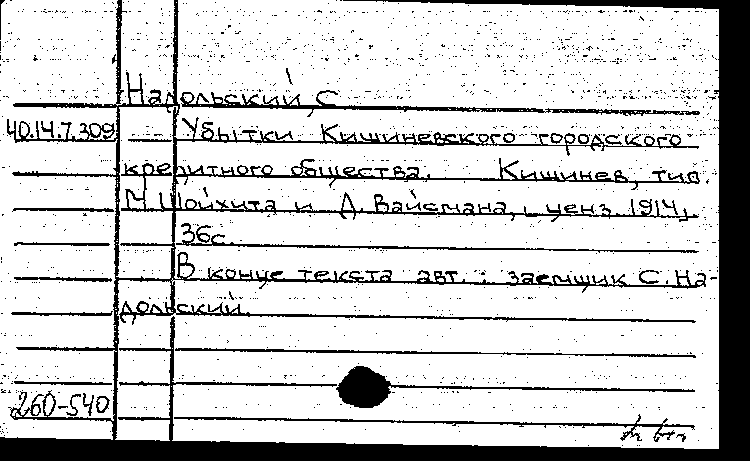 Надольский, С
40.14.7.309 Убытки Кишиневского городского
кредитного общества. Кишинев, тип.
М. Шойхита и Д. Вайсмана, ценз. 1914.
36с.
В конце текста авт.: заемщик С. На-
дольский.
260-540